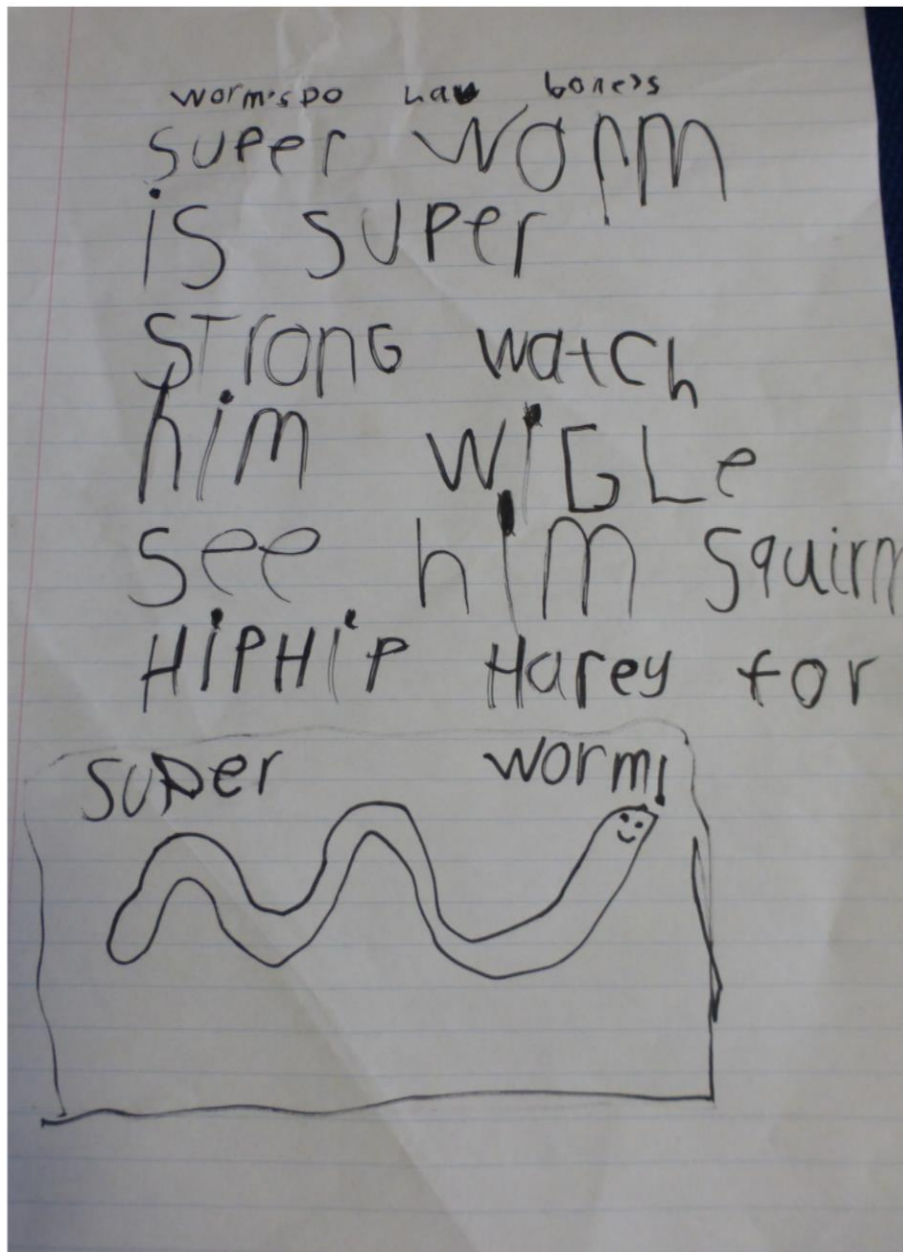 worm's Do hav bones
super worm
is super
STronG watch
him wiGLe
see him squirm
HiPHiP Harey for
super worm!